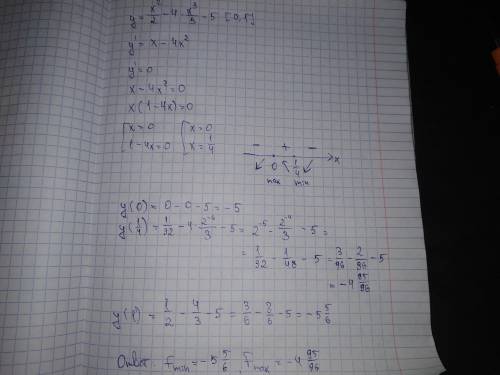 y = x²/2 - 4·x³/3 - 5 [0,1]
y' = x - 4x²
y' = 0
x - 4x² = 0
x(1-4x) = 0
[x = 0 [x = 0
1-4x = 0 x = 1/4
- + -
0 1/4 x
max min
y(0) = 0 - 0 - 5 = -5
y(1/4) = 1/32 - 4·2⁻⁶/3 - 5 = 2⁻⁵ - 2⁻⁴/3 - 5 =
= 1/32 - 1/48 - 5 = 3/96 - 2/96 - 5
= -4 95/96
y(1) = 1/2 - 4/3 - 5 = 3/6 - 8/6 - 5 = -5 5/6
Ответ: fmin = -5 5/6, fmax = -4 95/96